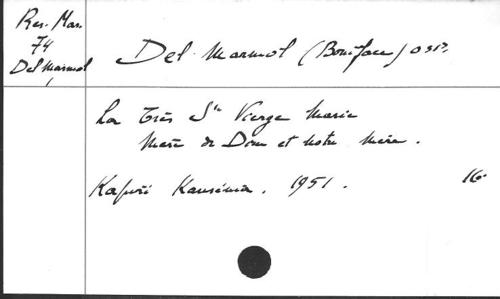 Res. Mar.
74
Del Marmol
Del Marmol (Boniface) OSB.
La Très Ste Vierge Marie
Mère de Dieu et notre Mère.
Kansénia. 1951. 16°